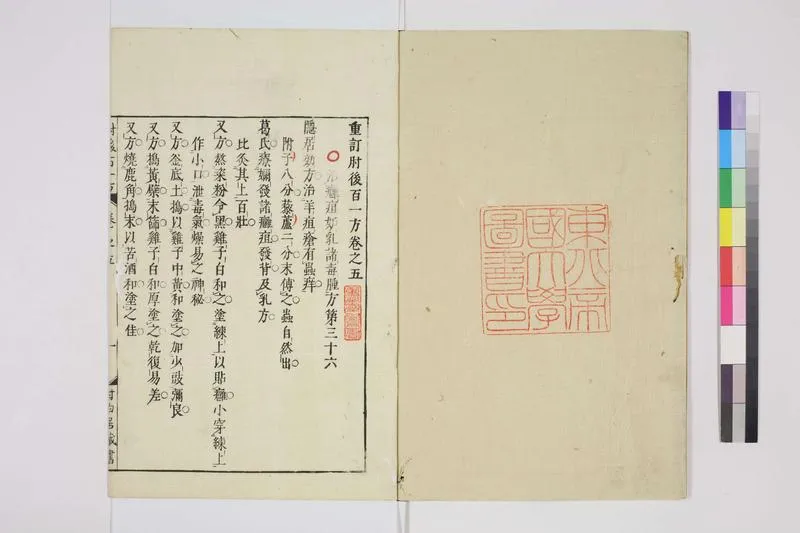 重訂肘後百一方卷之五
治癰疽妬乳諸毒腫方第三十六
隱居効方治羊疽瘡有蟲痒
附子八分藜蘆二分末傅之蟲自然出
葛氏療嬭發諸癰疽發背及乳方
比灸其上百壯
又方熬粢粉令黑雞子白和之塗練上以貼癰小穿練上
作小口泄毒氣燥易之神秘
又方釜底土搗以雞子中黃和塗之加少豉彌良
又方搗黃檗末篩雞子白和厚塗之乾復易差
又方燒鹿角搗末以苦酒和塗之佳
東北帝
國大學
圖書印